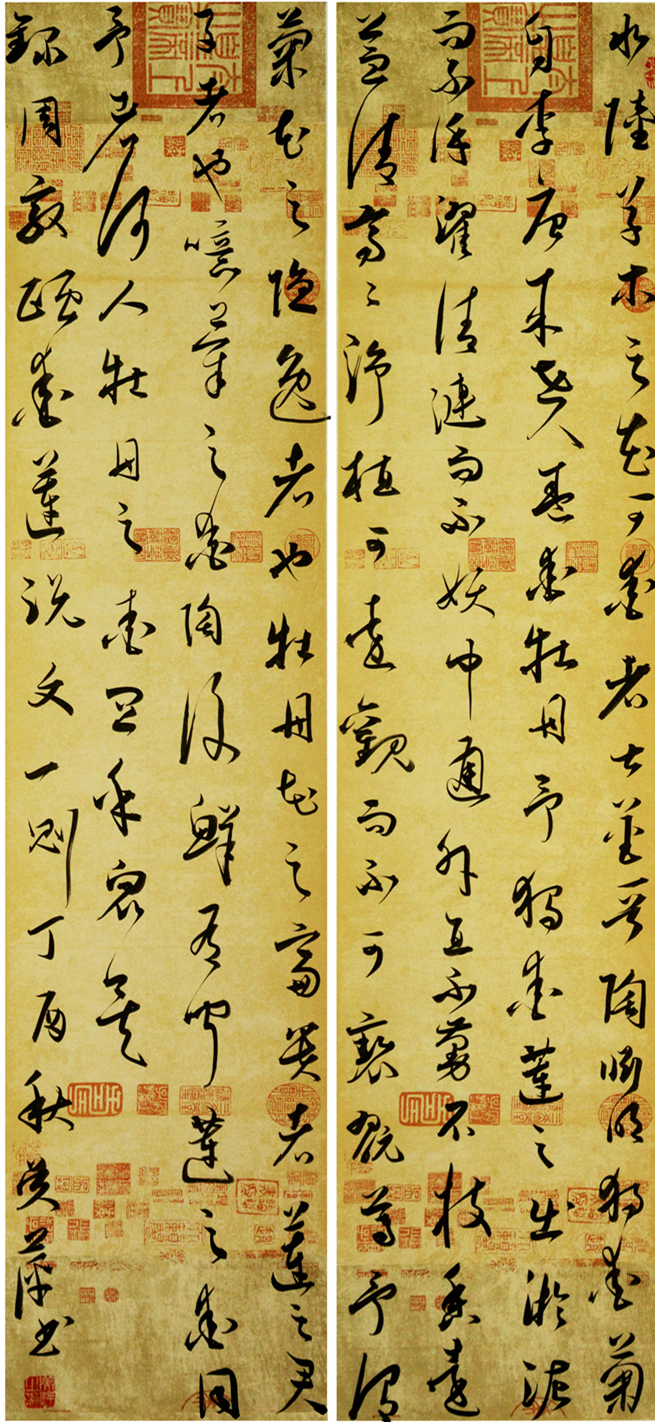 水陸草木之花可愛者甚蕃晉陶淵明獨愛菊
自李唐来世人盛愛牡丹予獨愛蓮之出淤泥
而不染濯清漣而不妖中通外直不蔓不枝香遠
益清亭亭淨植可遠觀而不可褻翫焉予謂
菊花之隐逸者也牡丹花之富貴者蓮之君
子者也噫菊之愛陶後鮮有聞蓮之愛同
予者何人牡丹之愛宜乎衆矣
錄周敦頤愛蓮說文一則丁酉秋书